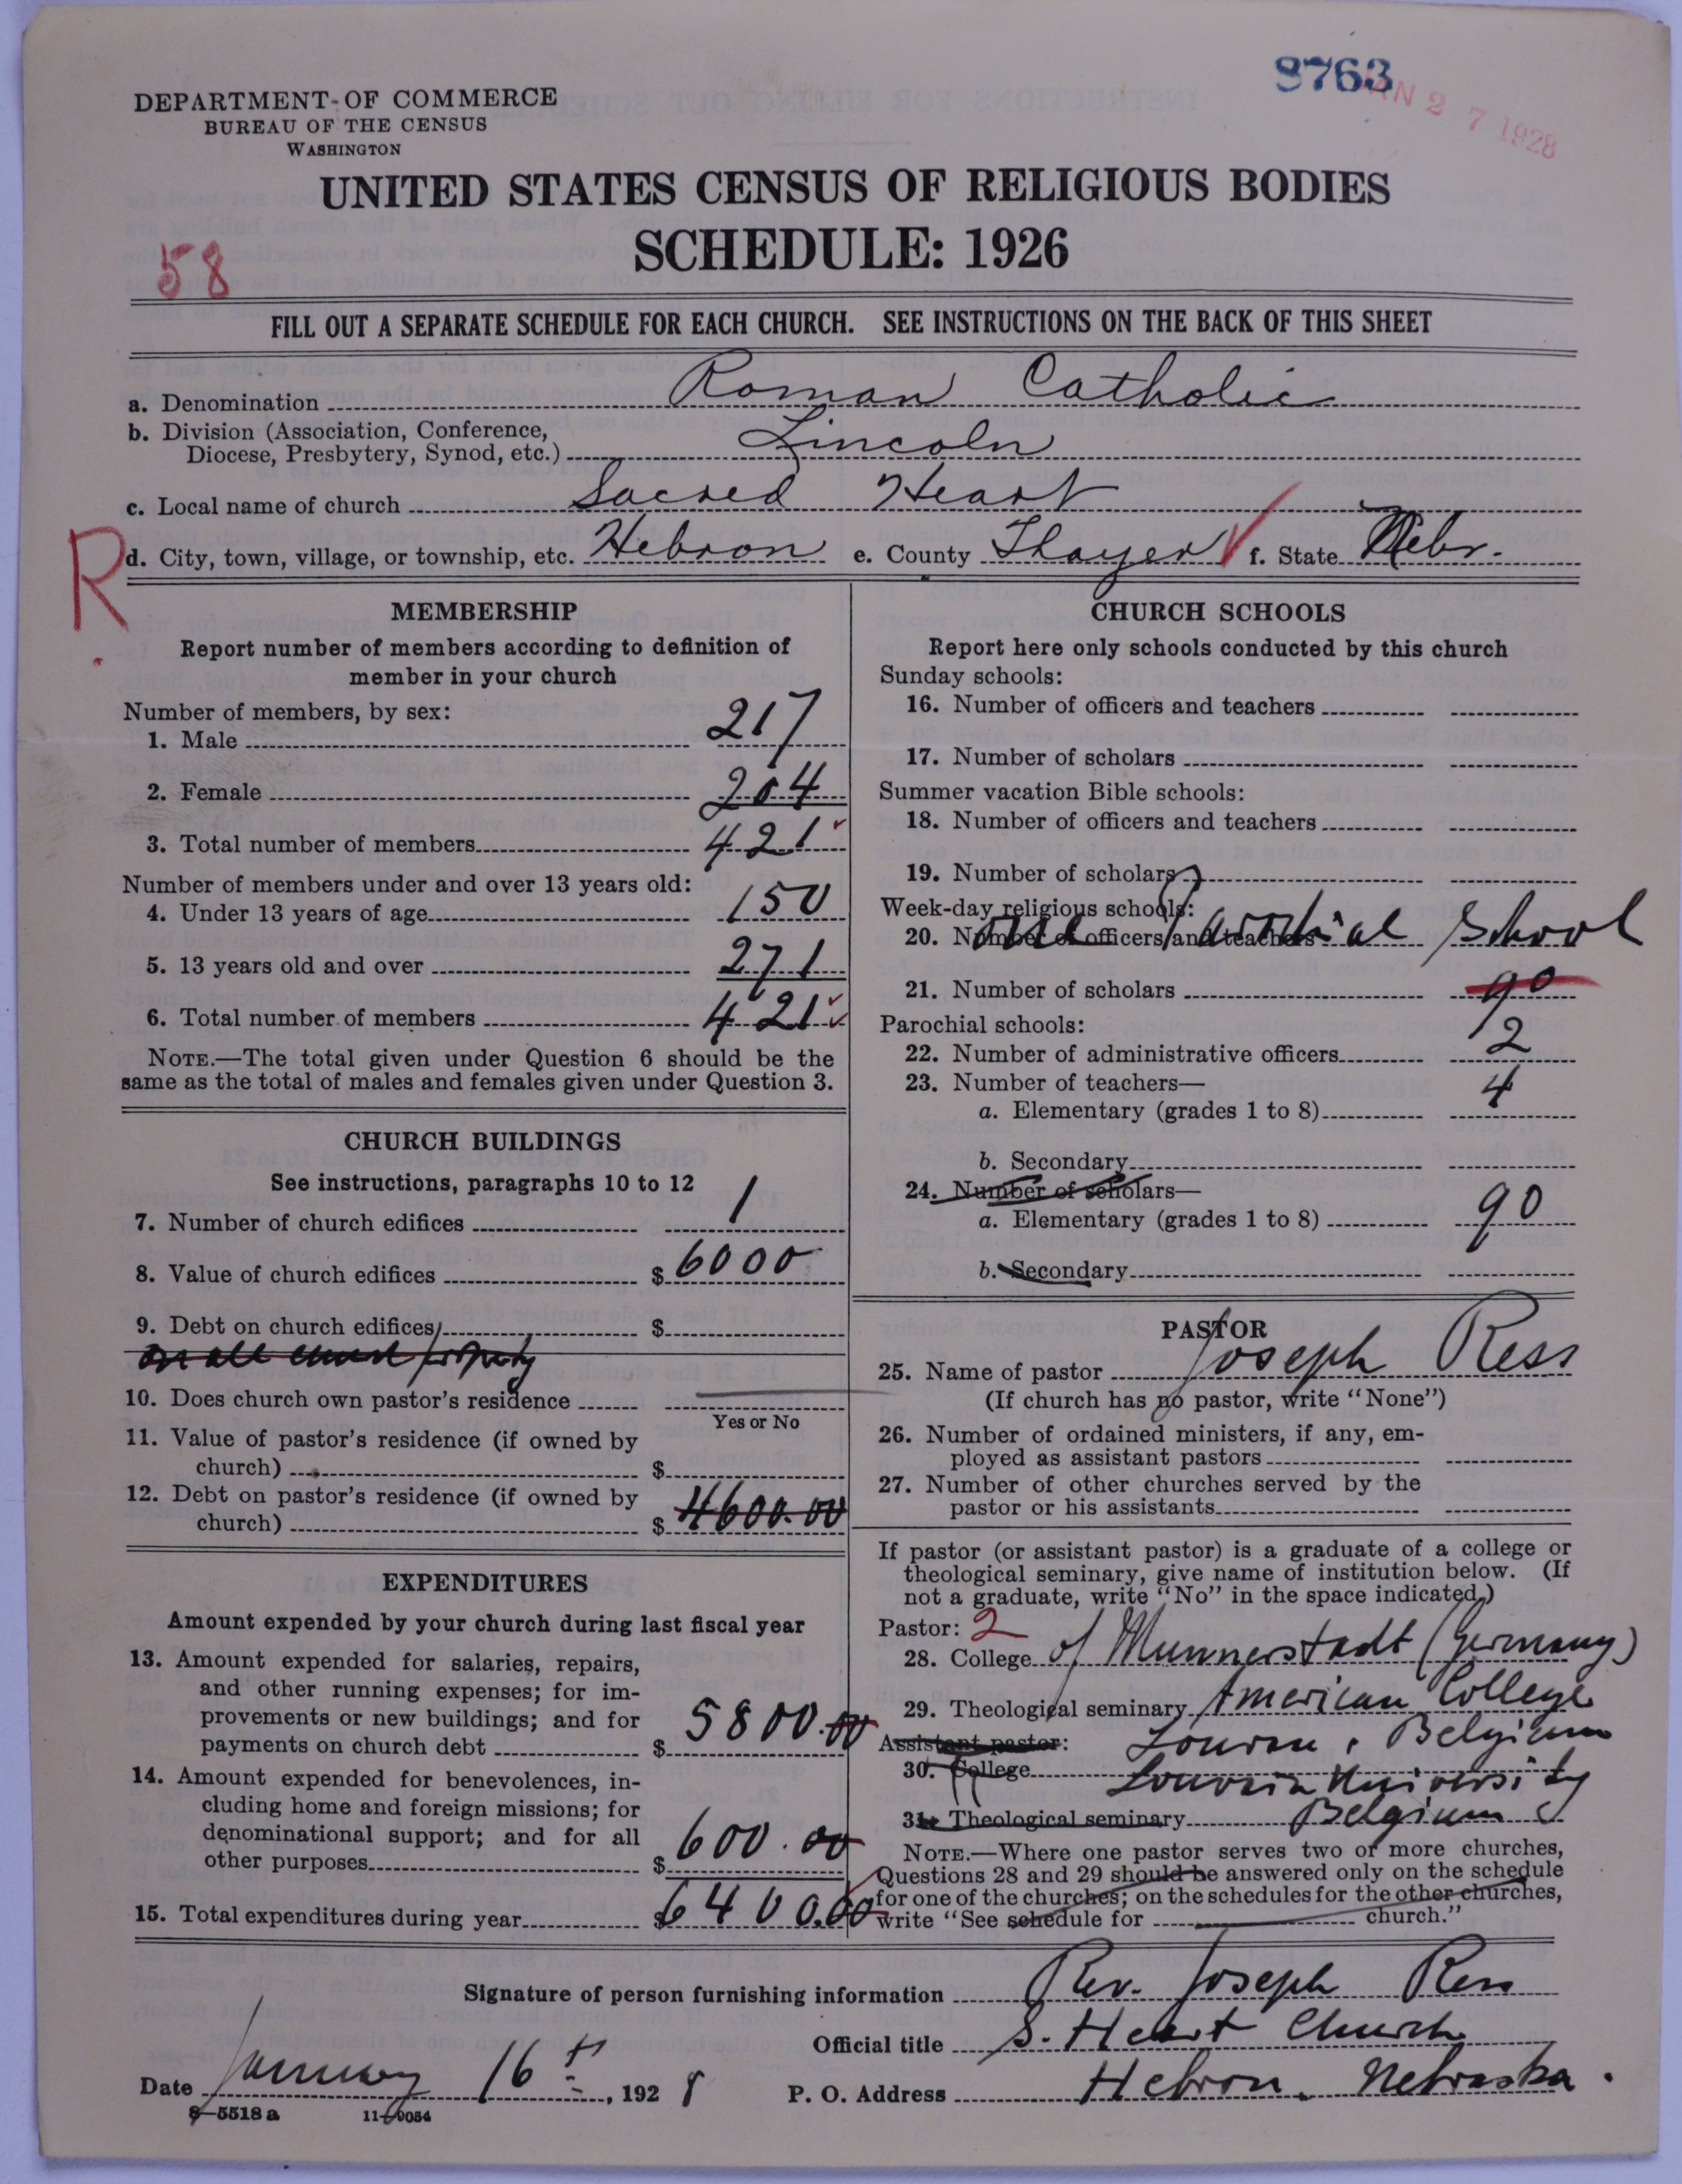 8763
JAN 27 1928
DEPARTMENT OF COMMERCE
BUREAU OF THE CENSUS
WASHINGTON
UNITED STATES CENSUS OF RELIGIOUS BODIES
SCHEDULE: 1926
58
FILL OUT A SEPARATE SCHEDULE FOR EACH CHURCH. SEE INSTRUCTIONS ON THE BACK OF THIS SHEET
a. Denomination Roman Catholic
b. Division (Association, Conference,
Diocese, Presbytery, Synod, etc.) Lincoln
c. Local name of church Sacred Heart
R
d. City, town, village, or township, etc. Hebron e. County Thayer f. State Nebr.
MEMBERSHIP
Report number of members according to definition of
member in your church
Number of members, by sex:
1. Male 217
2. Female 204
3. Total number of members 421
Number of members under and over 13 years old:
4. Under 13 years of age 150
5. 13 years old and over 271
6. Total number of members 421
NOTE.—The total given under Question 6 should be the
same as the total of males and females given under Question 3.
CHURCH BUILDINGS
See instructions, paragraphs 10 to 12
7. Number of church edifices 1
8. Value of church edifices $ 6000
9. Debt on church edifices $
on all church property
10. Does church own pastor's residence
Yes or No
11. Value of pastor's residence (if owned by
church) $
12. Debt on pastor's residence (if owned by
church) $ 4600.00
EXPENDITURES
Amount expended by your church during last fiscal year
13. Amount expended for salaries, repairs,
and other running expenses; for im-
provements or new buildings; and for
payments on church debt $ 5800.00
14. Amount expended for benevolences, in-
cluding home and foreign missions; for
denominational support; and for all
other purposes $ 600.00
15. Total expenditures during year $ 6400.00
CHURCH SCHOOLS
Report here only schools conducted by this church
Sunday schools:
16. Number of officers and teachers
17. Number of scholars
Summer vacation Bible schools:
18. Number of officers and teachers
19. Number of scholars
Week-day religious schools:
one Parochial School
20. Number of officers and teachers
21. Number of scholars 90
Parochial schools:
22. Number of administrative officers 2
23. Number of teachers—
a. Elementary (grades 1 to 8) 4
b. Secondary
24. Number of scholars—
a. Elementary (grades 1 to 8) 90
b. Secondary
PASTOR
25. Name of pastor Joseph Ress
(If church has no pastor, write "None")
26. Number of ordained ministers, if any, em-
ployed as assistant pastors
27. Number of other churches served by the
pastor or his assistants
If pastor (or assistant pastor) is a graduate of a college or
theological seminary, give name of institution below. (If
not a graduate, write "No" in the space indicated.)
Pastor: 2
28. College of Munnerstadt (Germany)
29. Theological seminary American College
Assistant pastor: Louvain, Belgium
30. College Louvain University
31. Theological seminary Belgium
NOTE.—Where one pastor serves two or more churches,
Questions 28 and 29 should be answered only on the schedule
for one of the churches; on the schedules for the other churches,
write "See schedule for church."
Signature of person furnishing information Rev. Joseph Ress
Official title S. Heart Church
Date January 16th, 1928 P. O. Address Hebron, Nebraska.
8—5518a 11—9054